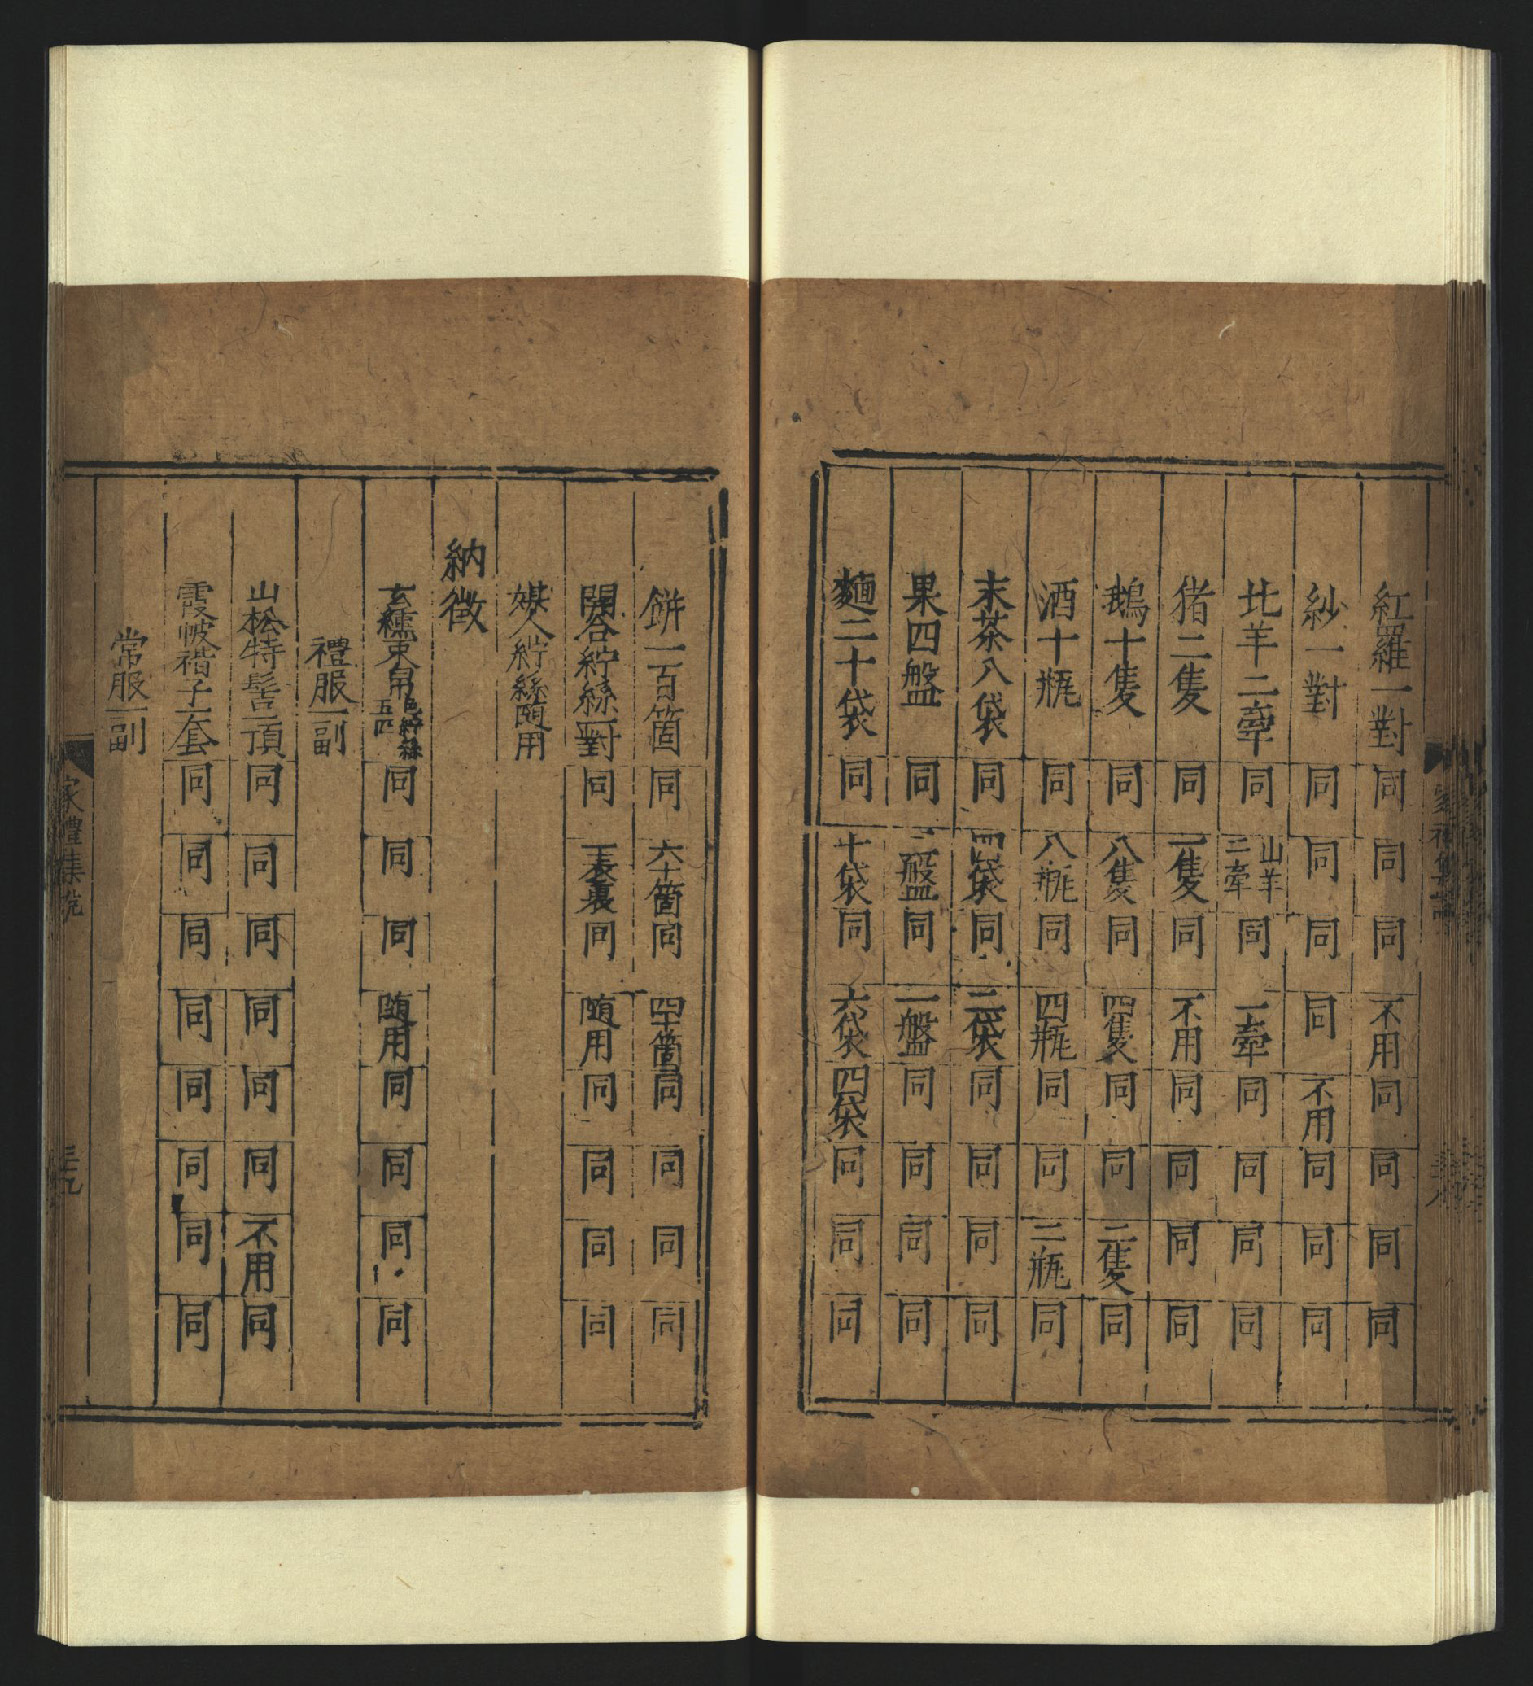 紅羅一對同同同不用同同同同
紗一對同同同同不用同同同
北羊二牽同山羊二牽同一牽同同同同
猪二隻同一隻同不用同同同同
鵝十隻同八隻同四隻同同二隻同
酒十瓶同八瓶同四瓶同同二瓶同
末茶八袋同四袋同二袋同同同同
果四盤同二盤同一盤同同同同
麵二十袋同十袋同六袋四袋同同同
餅一百箇同六十箇同四十箇同同同同
開合紵絲一對同一表裏同隨用同同同同
媒人紵絲隨用
納徵
玄纁束帛色紵絲五匹同同同隨用同同同同
禮服一副
山松特髻一頂同同同同同同不用同
霞帔褙子一套同同同同同同同同
常服一副
家禮集說
三九